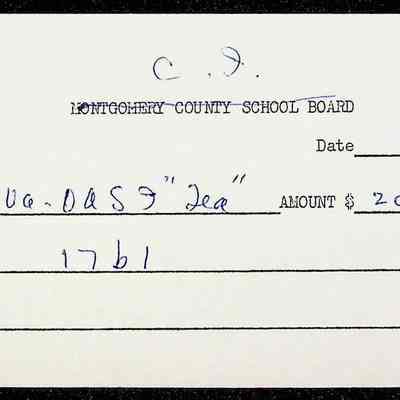 C. F.
MONTGOMERY COUNTY SCHOOL BOARD
Date
Va. DASF "Tea" AMOUNT $ 20
1761